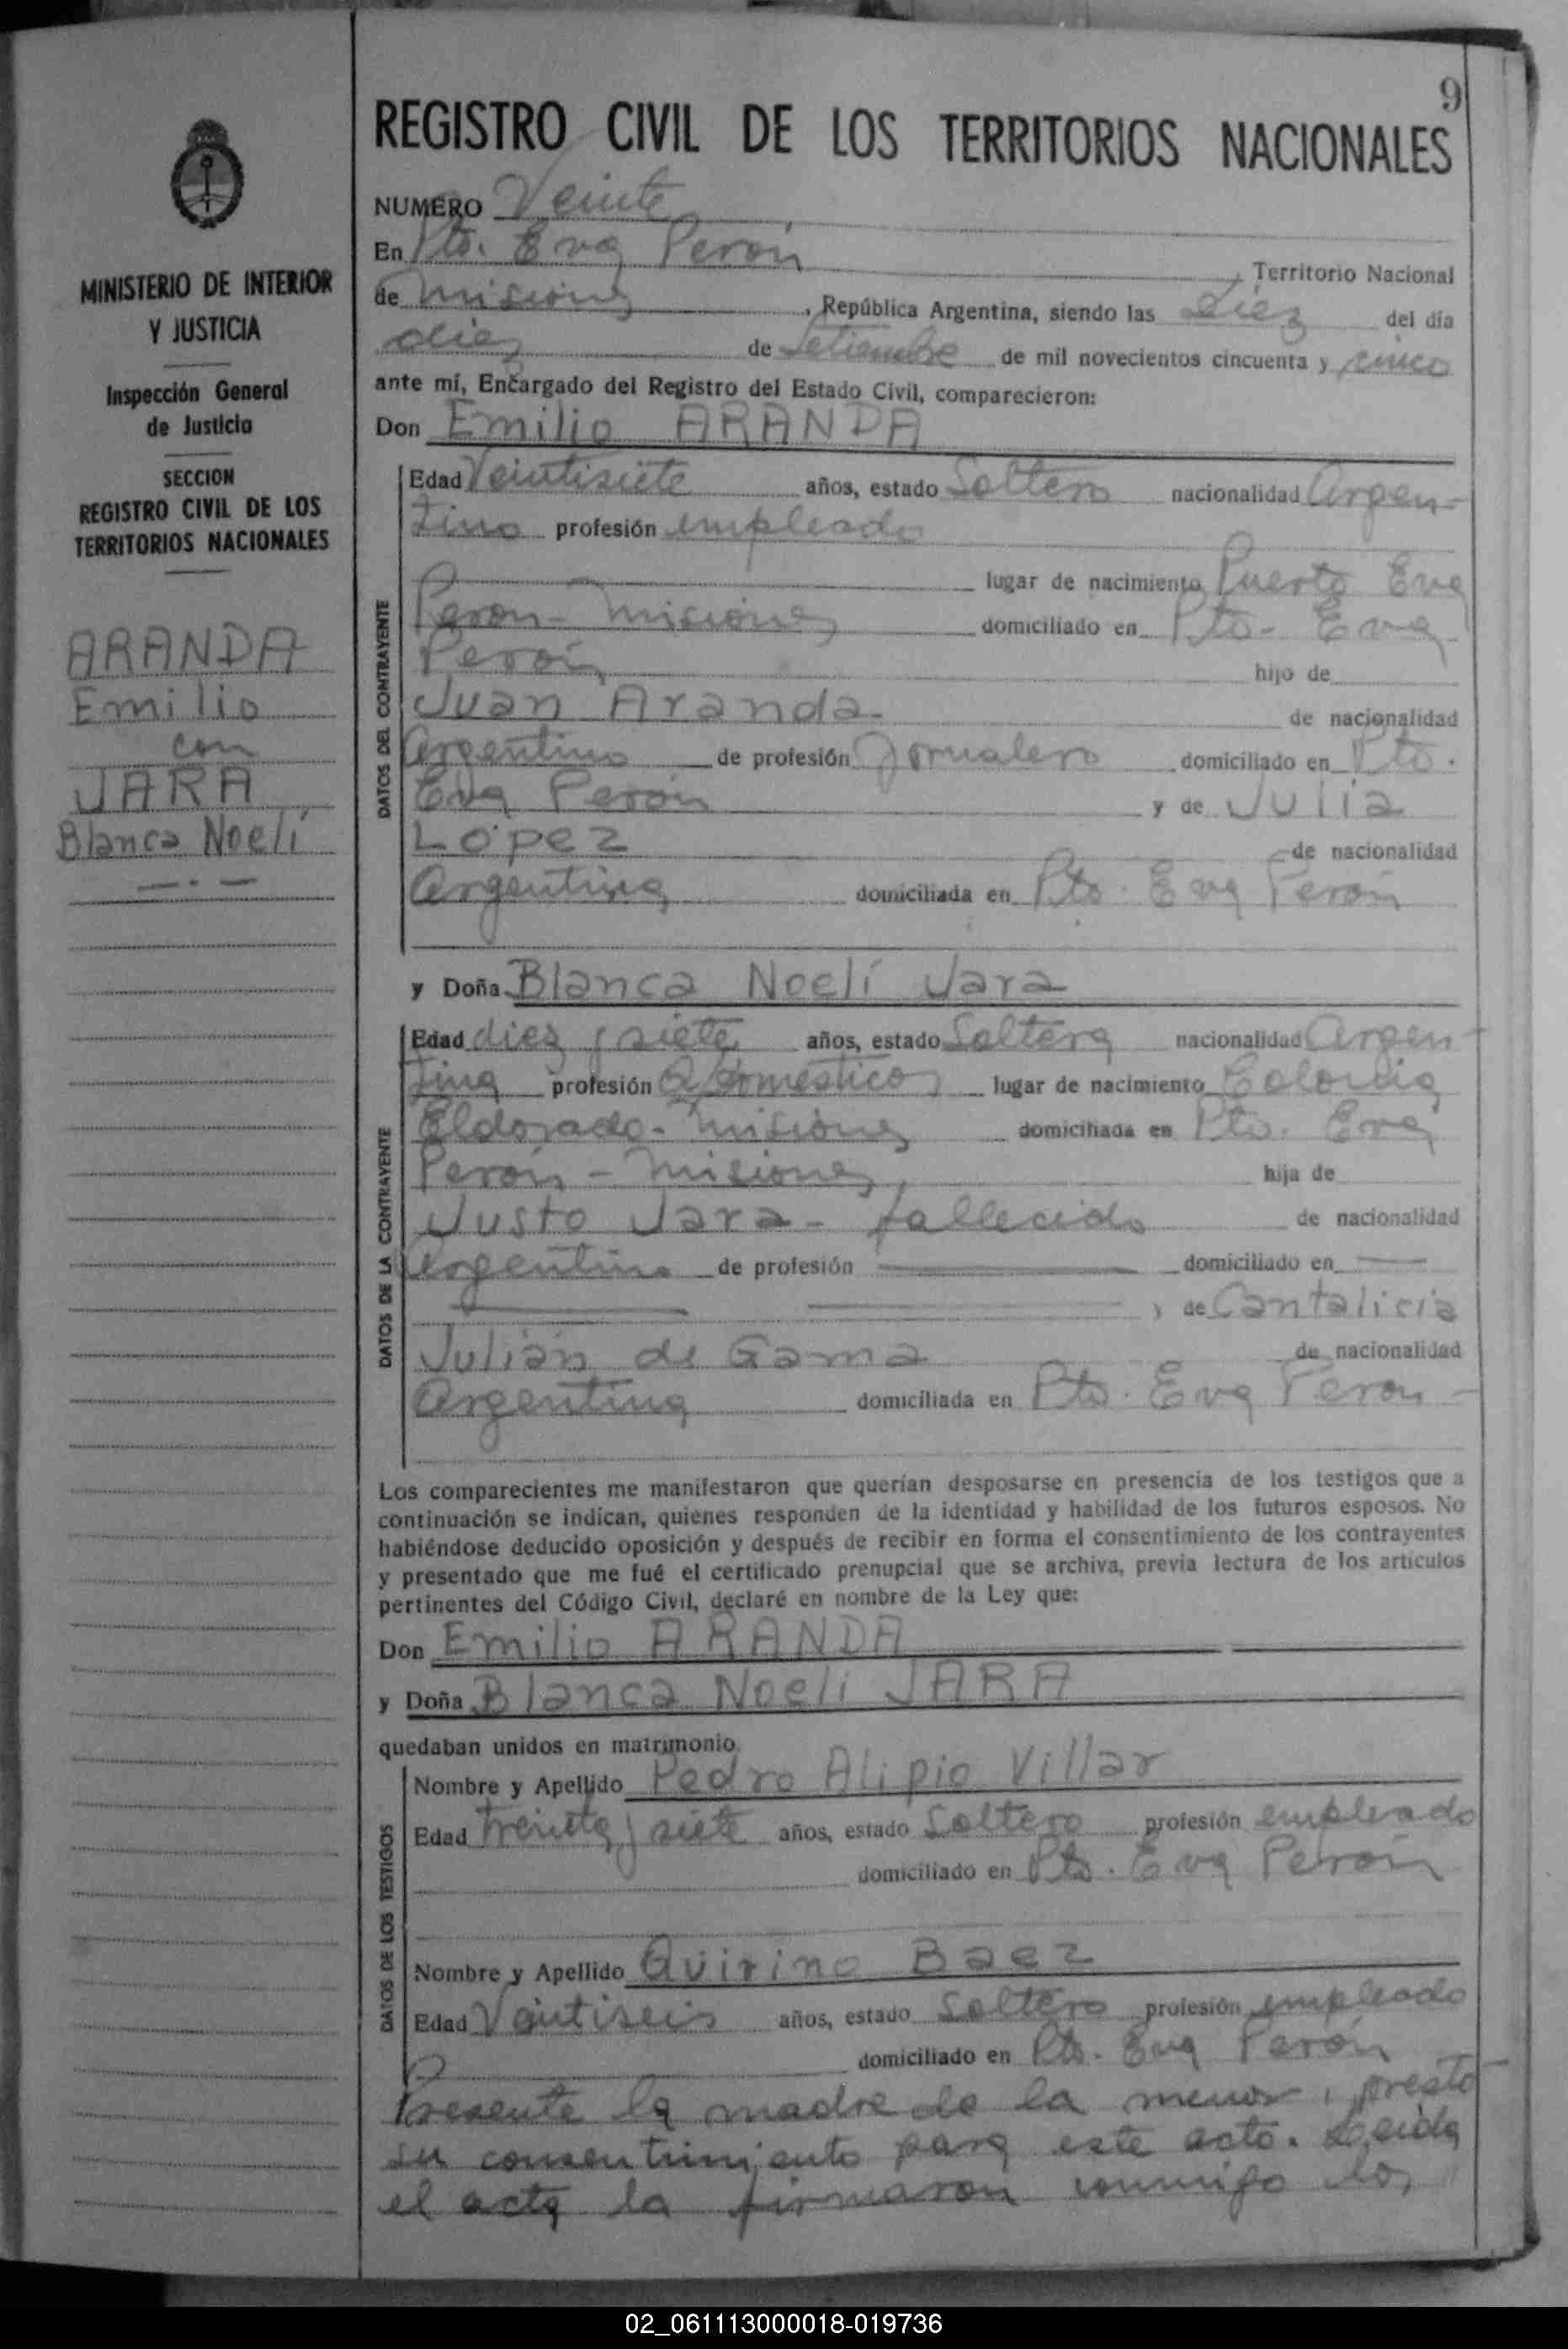 9
MINISTERIO DE INTERIOR
Y JUSTICIA
Inspección General
de Justicia
SECCION
REGISTRO CIVIL DE LOS
TERRITORIOS NACIONALES
ARANDA
Emilio
con
JARA
Blanca Noelí
REGISTRO CIVIL DE LOS TERRITORIOS NACIONALES
NUMERO Veinte
En Pto. Eva Perón, Territorio Nacional
de Misiones, República Argentina, siendo las diez del día
diez de Setiembre de mil novecientos cincuenta y cinco
ante mí, Encargado del Registro del Estado Civil, comparecieron:
Don Emilio ARANDA
DATOS DEL CONTRAYENTE
Edad Veintisiete años, estado Soltero nacionalidad Argen-
tino profesión empleado
lugar de nacimiento Puerto Eva
Peron - Misiones domiciliado en Pto. Eva
Perón hijo de
Juan Aranda de nacionalidad
Argentino de profesión Jornalero domiciliado en Pto.
Eva Perón y de Julia
López de nacionalidad
Argentina domiciliada en Pto. Eva Perón
y Doña Blanca Noelí Jara
DATOS DE LA CONTRAYENTE
Edad diez y siete años, estado Soltera nacionalidad Argen-
tina profesión Q/domésticos lugar de nacimiento Colonia
Eldorado - Misiones domiciliada en Pto. Eva
Perón - Misiones hija de
Justo Jara - fallecido de nacionalidad
Argentino de profesión domiciliado en
y de Cantalicia
Julián de Gama de nacionalidad
Argentina domiciliada en Pto. Eva Peron -
Los comparecientes me manifestaron que querían desposarse en presencia de los testigos que a
continuación se indican, quienes responden de la identidad y habilidad de los futuros esposos. No
habiéndose deducido oposición y después de recibir en forma el consentimiento de los contrayentes
y presentado que me fué el certificado prenupcial que se archiva, previa lectura de los artículos
pertinentes del Código Civil, declaré en nombre de la Ley que:
Don Emilio ARANDA
y Doña Blanca Noeli JARA
quedaban unidos en matrimonio.
DATOS DE LOS TESTIGOS
Nombre y Apellido Pedro Alipio Villar
Edad treinta y siete años, estado Soltero profesión empleado
domiciliado en Pto. Eva Perón
Nombre y Apellido Quirino Baez
Edad Veintiseis años, estado Soltero profesión empleado
domiciliado en Pto. Eva Perón
Presente la madre de la menor, prestó
su consentimiento para este acto. Leida
el acta la firmaron conmigo los
02_061113000018-019736